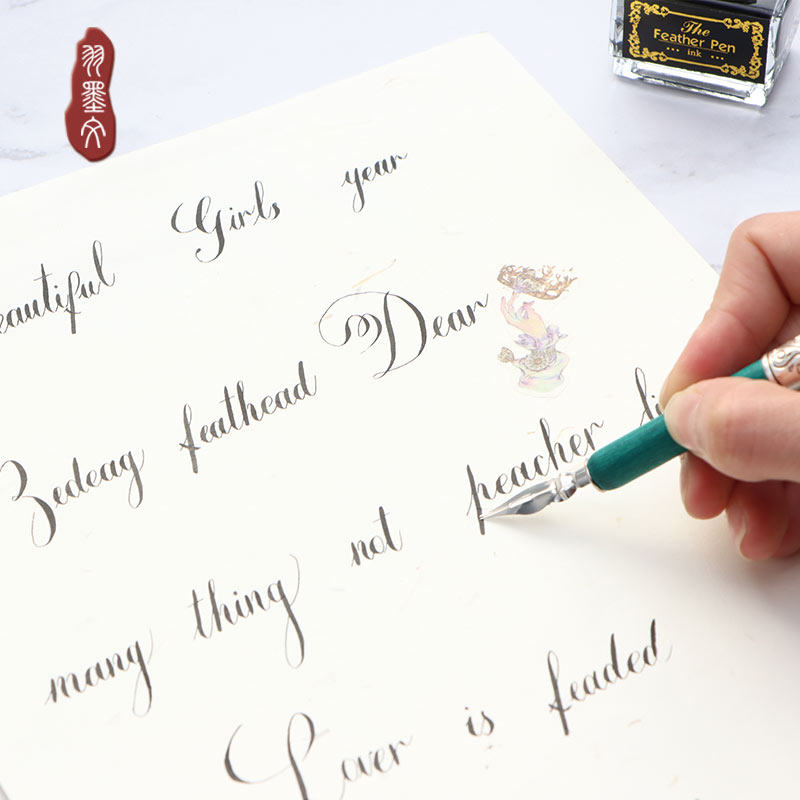 羽墨文
The
Feather Pen
ink
Girls year
Dear
Zedeag feathead
peacher
many thing not
Lover is feaded